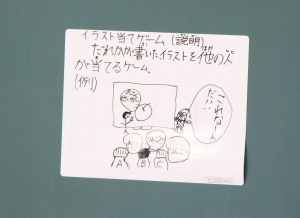 イラスト当てゲーム(説明)
だれかが書いたイラストを他の人
が当てるゲーム。
(例)
これなーん
だ!!
りんご!
A
B
C